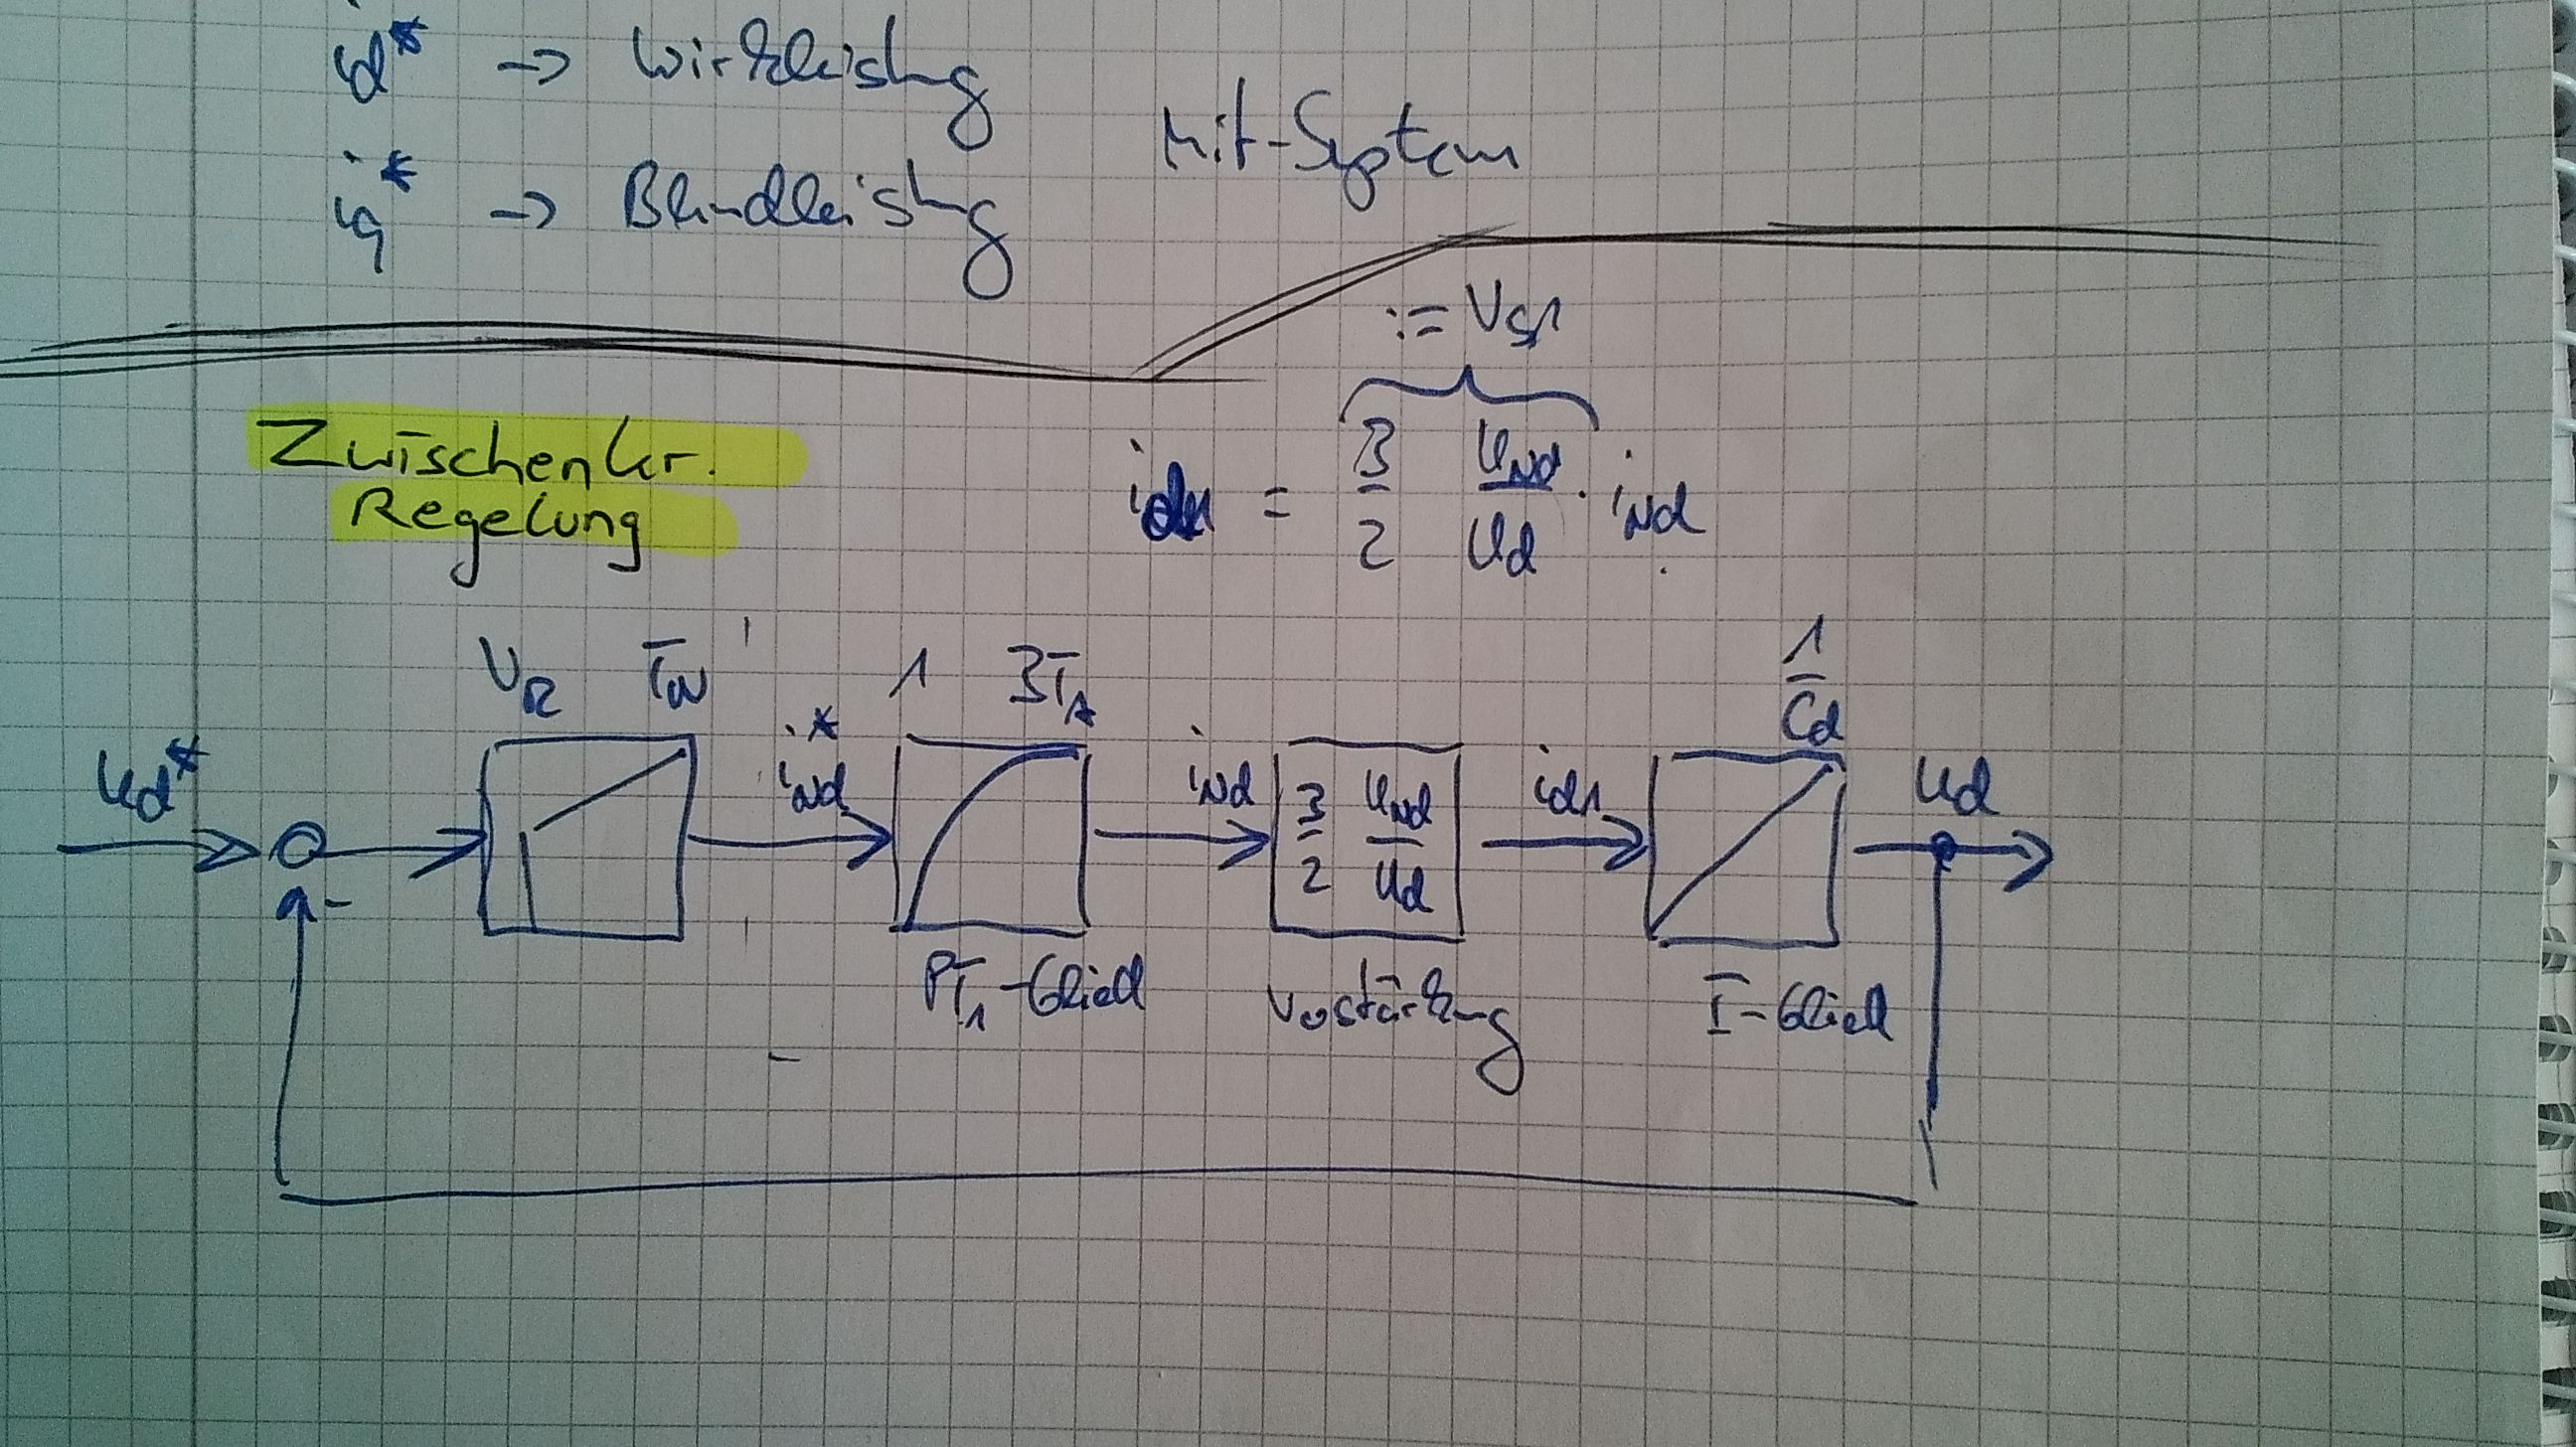 id* → Wirkleistung
iq* → Blindleistung
Mit-System
:= VS1
Zwischenkr.
Regelung
id1 = 3/2 UNd/Ud · iNd
VR TN
1 3TA
1/Cd
Ud*
iNd*
iNd
3/2 UNd/Ud
id1
Ud
-
PT1-Glied
Verstärkung
I-Glied